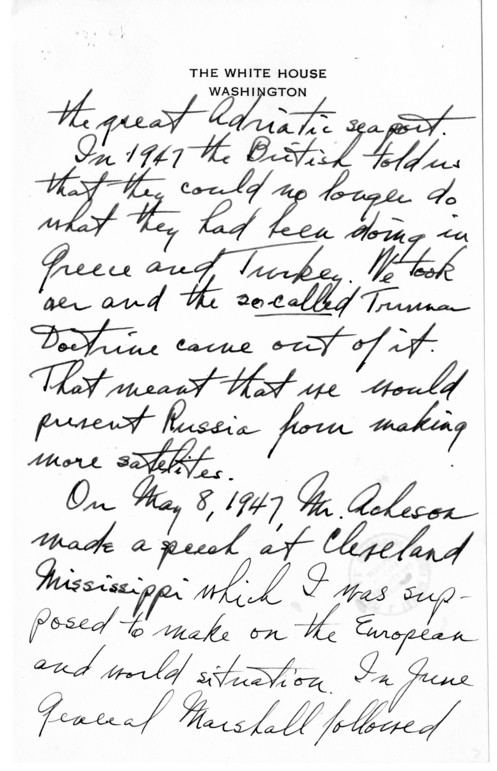 THE WHITE HOUSE
WASHINGTON
the great Adriatic seaport.
In 1947 the British told us
that they could no longer do
what they had been doing in
Greece and Turkey. We took
over and the socalled Truman
Doctrine came out of it.
That meant that we would
prevent Russia from making
more satelites.
On May 8, 1947, Mr. Acheson
made a speech at Cleveland
Mississippi which I was sup-
posed to make on the European
and world situation. In June
General Marshall followed